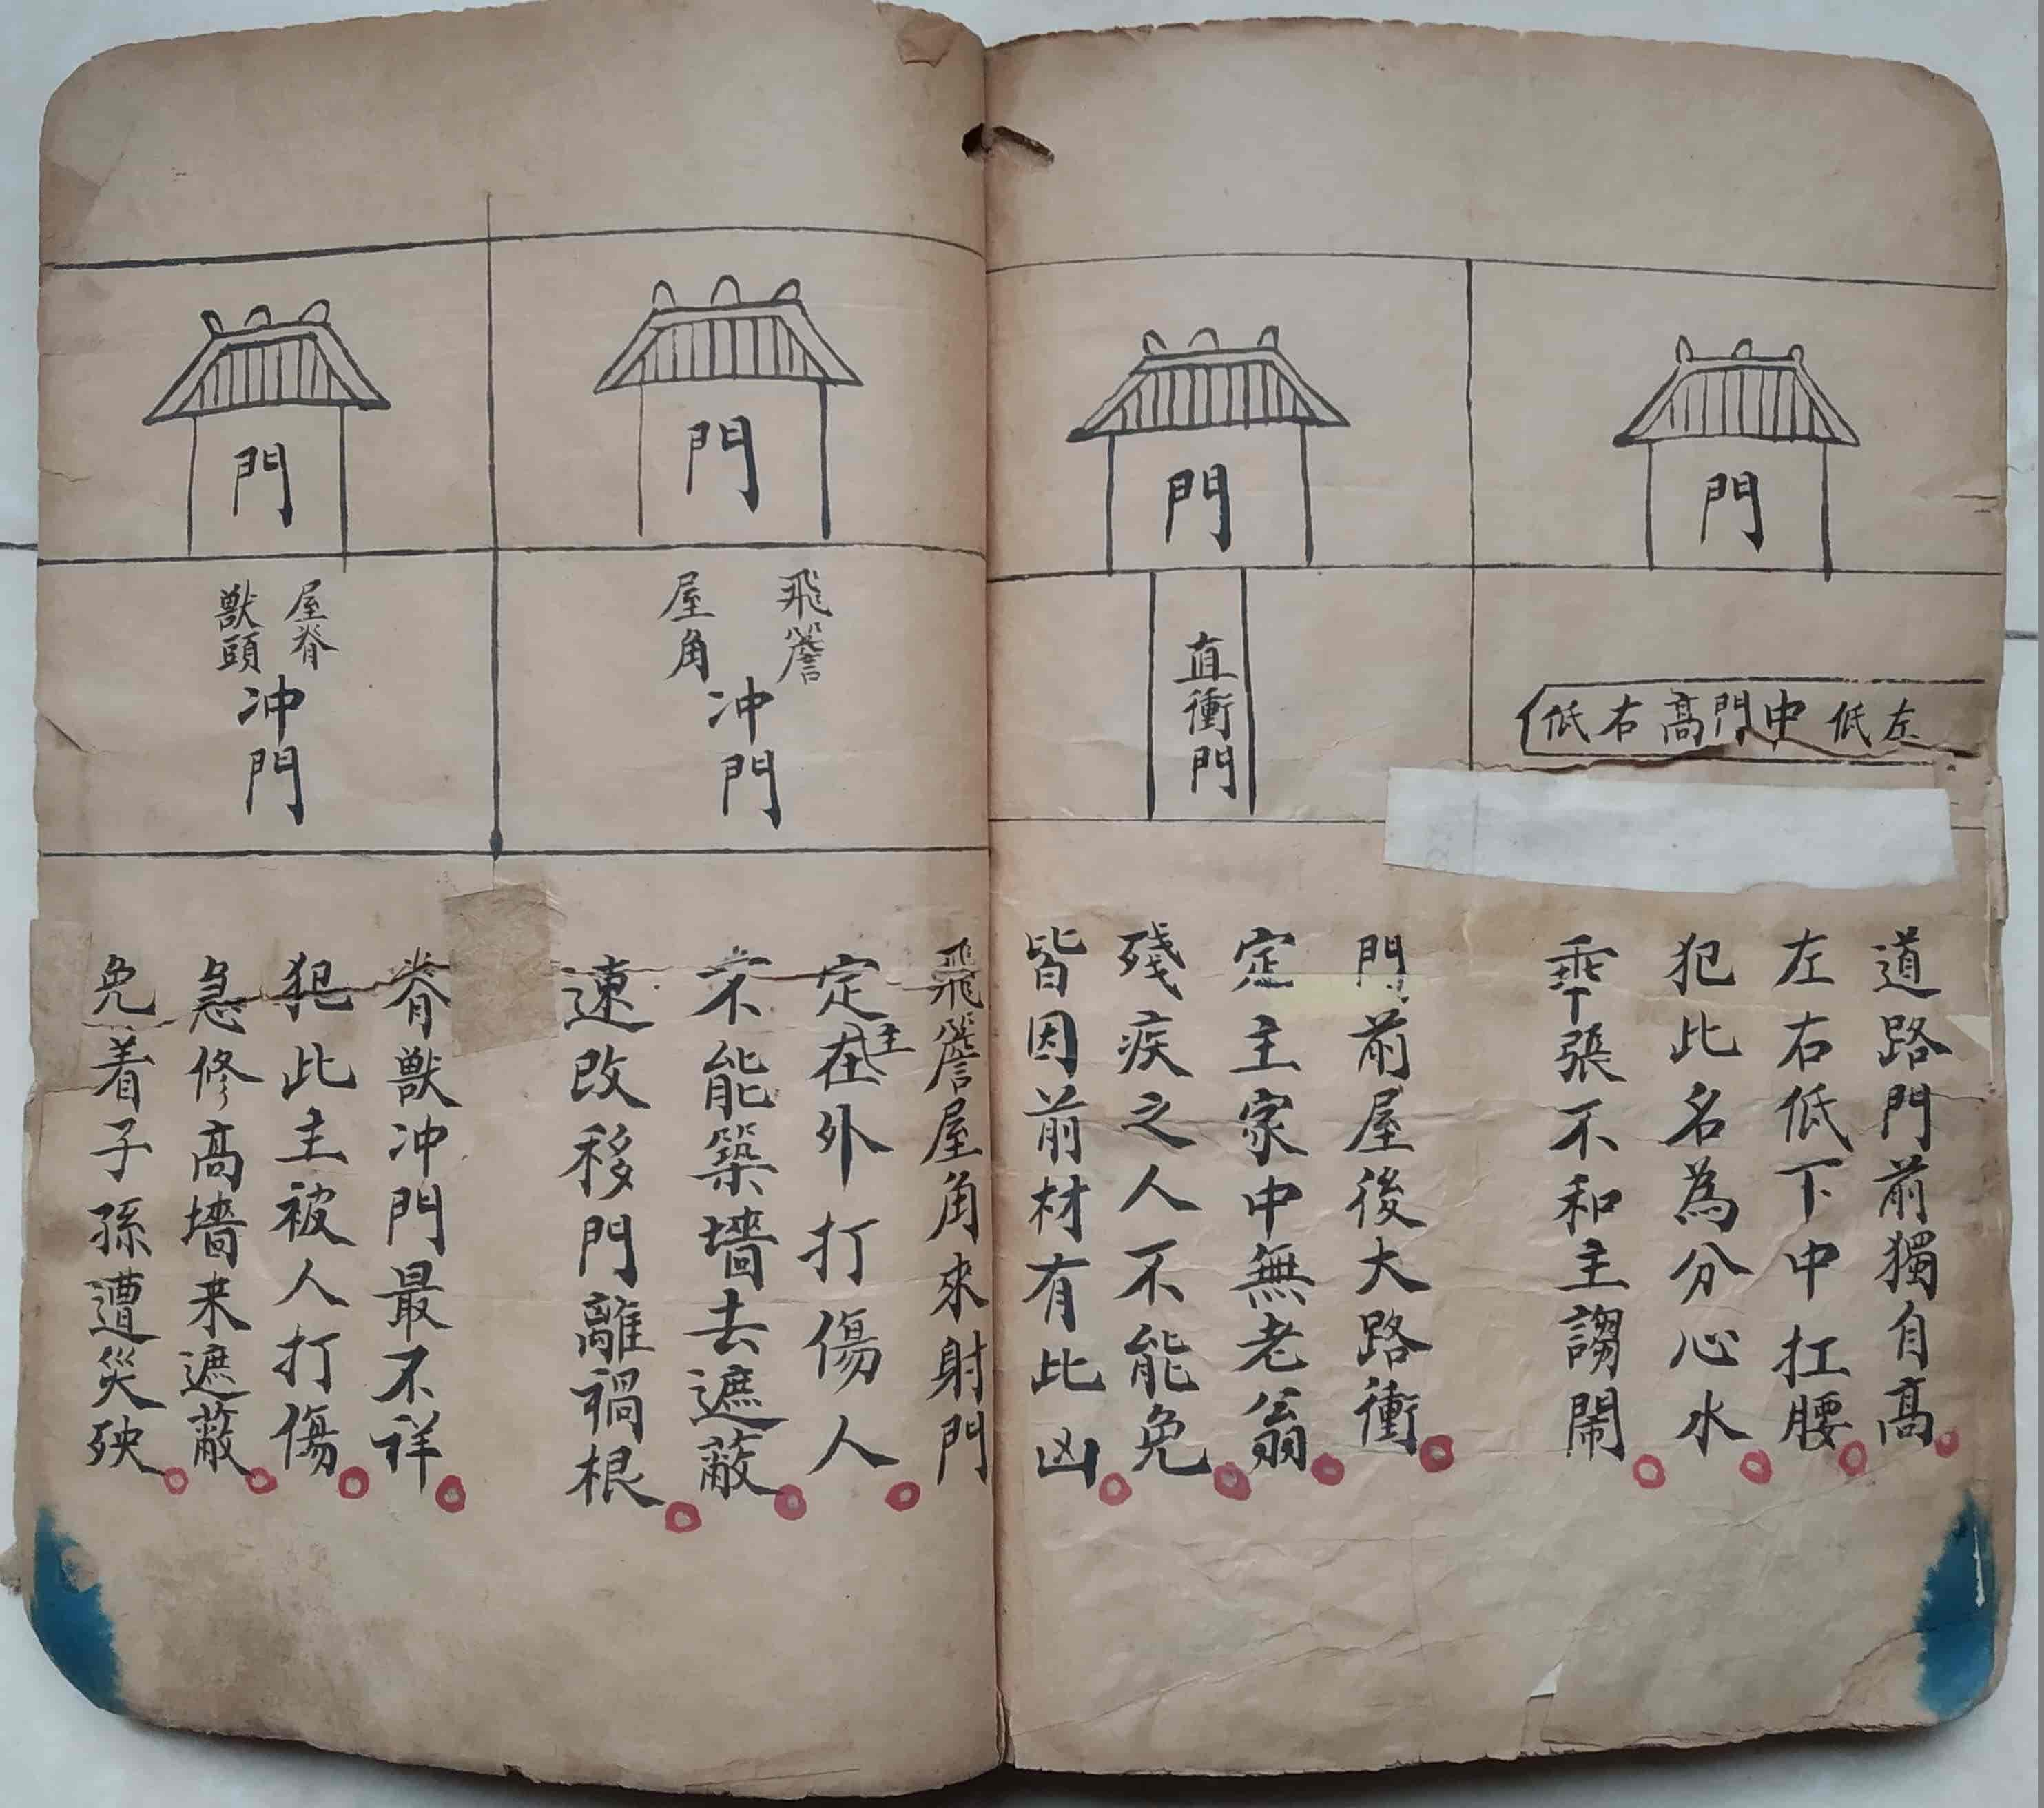 門
左低中門高右低
道路門前獨自高
左右低下中扛腰
犯此名為分心水
乖張不和主謅鬧
門
直衝門
門前屋後大路衝
定主家中無老翁
殘疾之人不能免
皆因前材有此凶
門
飛簷
屋角
冲門
飛簷屋角來射門
定主在外打傷人
不能築墻去遮蔽
速改移門離禍根
門
屋脊
獸頭
冲門
脊獸冲門最不祥
犯此主被人打傷
急修高墻来遮蔽
免着子孫遭災殃